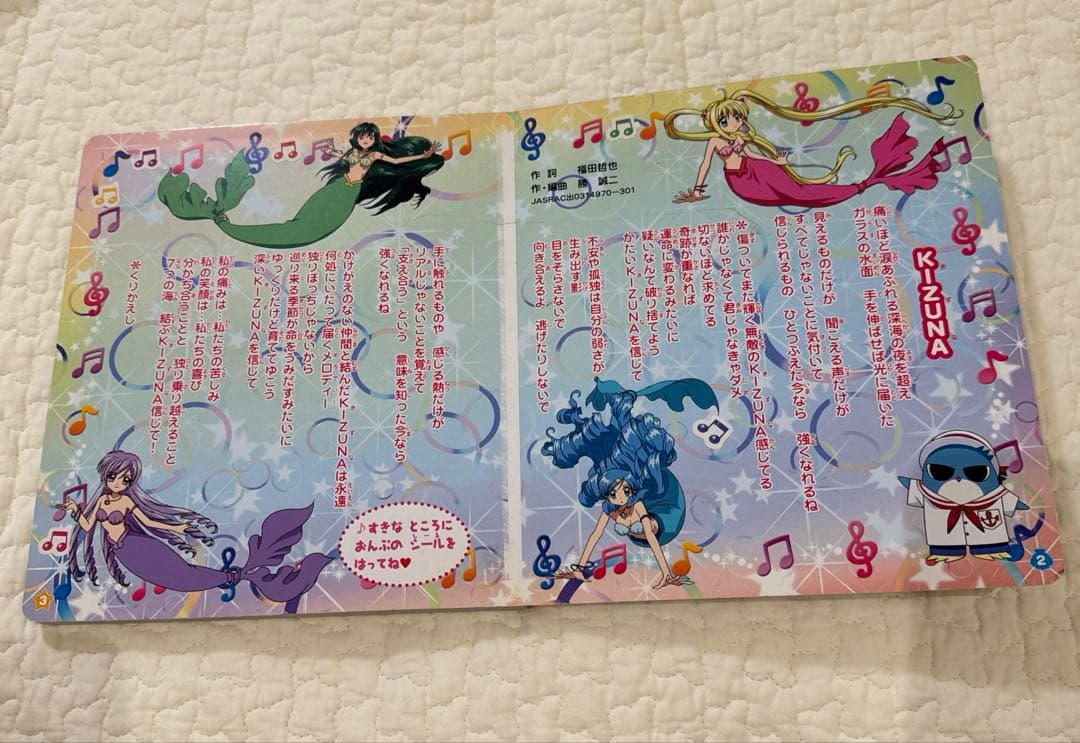 KIZUNA
作詞　福田哲也
作・編曲　勝 誠二
JASRAC出0314970-301
痛いほど涙あふれる深海の夜を超え
ガラスの水面　手を伸ばせば光に届いた
見えるものだけが　聞こえる声だけが
すべてじゃないことに気付いて　強くなれるね
信じられるもの　ひとつふえた今なら
＊傷ついてまた輝く無敵のKIZUNA感じてる
誰かじゃなくて君じゃなきゃダメ
切ないほど求めてる
奇跡が重なれば
運命に変わるみたいに
疑いなんて破り捨てよう
かたいKIZUNAを信じて
不安や孤独は自分の弱さが
生み出す影
目をそらさないで
向き合えるよ　逃げたりしないで
手に触れるものや　感じる熱だけが
リアルじゃないことを覚えて
「支え合う」という　意味を知った今なら
強くなれるね
かけがえのない仲間と結んだKIZUNAは永遠
何処にいたって届くメロディー
独りぼっちじゃないから
巡り来る季節が命をうみだすみたいに
ゆっくりだけど育ててゆこう
深いKIZUNAを信じて
私の痛みは…私たちの苦しみ
私の笑顔は…私たちの喜び
分かち合うこと　独り乗り越えること
7つの海　結ぶKIZUNA信じて！
＊くりかえし
♪すきな ところに
おんぷの シールを
はってね♥
2
3